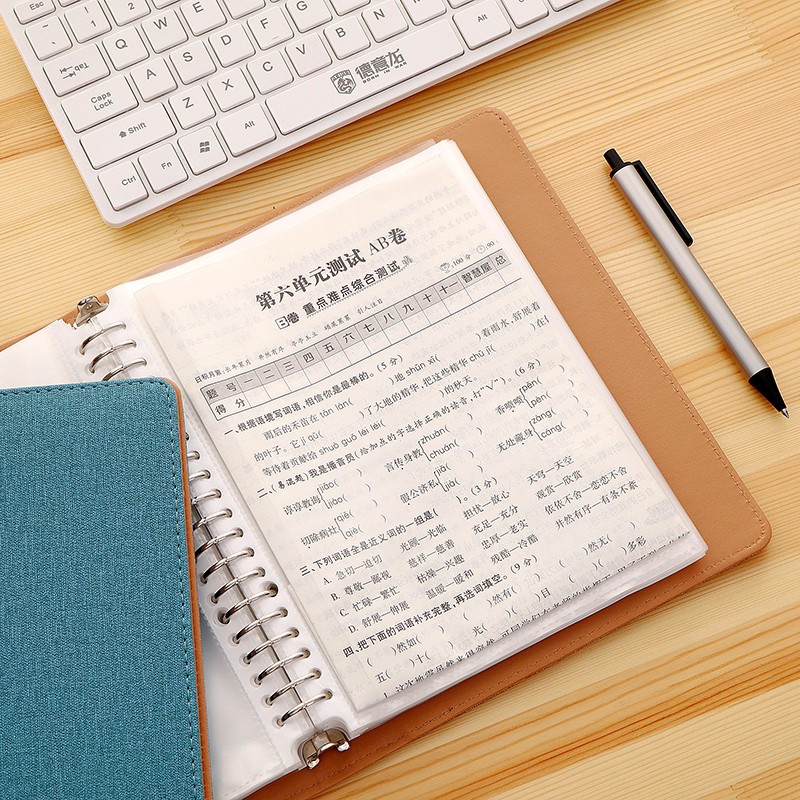 Esc
1
2
Tab
Q
W
E
R
T
Caps Lock
A
S
D
F
G
Shift
Z
X
C
V
B
N
M
Ctrl
Fn
Alt
德意龙
BORN IN WAR
Alt
Ctrl
第六单元测试 AB卷
B卷 重点难点综合测试
100 分 90
日积月累:长年累月 井然有序 亭亭玉立 硕果累累 引人注目
题号 一 二 三 四 五 六 七 八 九 十 十一 智慧屋 总
得分
一、根据语境写词语,相信你是最棒的。(5分)
雨后的禾苗在 tān lán( )地 shǔn xī( )着雨水,舒展着
的叶子。它 jī qǔ( )了大地的精华,把这些精华 chǔ jī( )在
等待着贡献给 shuò guǒ léi léi( )的秋天。
二、(易混题)我是播音员(给加点的字选择正确的读音,打“√”)。(6分)
谆谆教诲 jiāo( ) jiào( )
言传身教 zhuàn( ) chuán( )
香喷喷 pēn( ) pèn( )
切除病灶 qiē( ) qiè( )
假公济私 jiǎ( ) jià( )
无处藏身 zàng( ) cáng( )
三、下列词语全是近义词的一组是( )。(3分)
A. 急切—迫切 光顾—光临 担忧—放心 天穹—天空
B. 尊敬—鄙视 慈祥—慈善 充足—充分 观赏—欣赏
C. 忙碌—繁忙 枯燥—兴趣 忠厚—老实 依依不舍—恋恋不舍
D. 舒展—伸展 温暖—暖和 残酷—冷酷 井然有序—有条不紊
四、把下面的词语补充完整,再选词填空。(9分)
( )然如( ) ( )然有( ) ( )然无( )
五( )十( ) 光( )( )目 ( )( )多彩